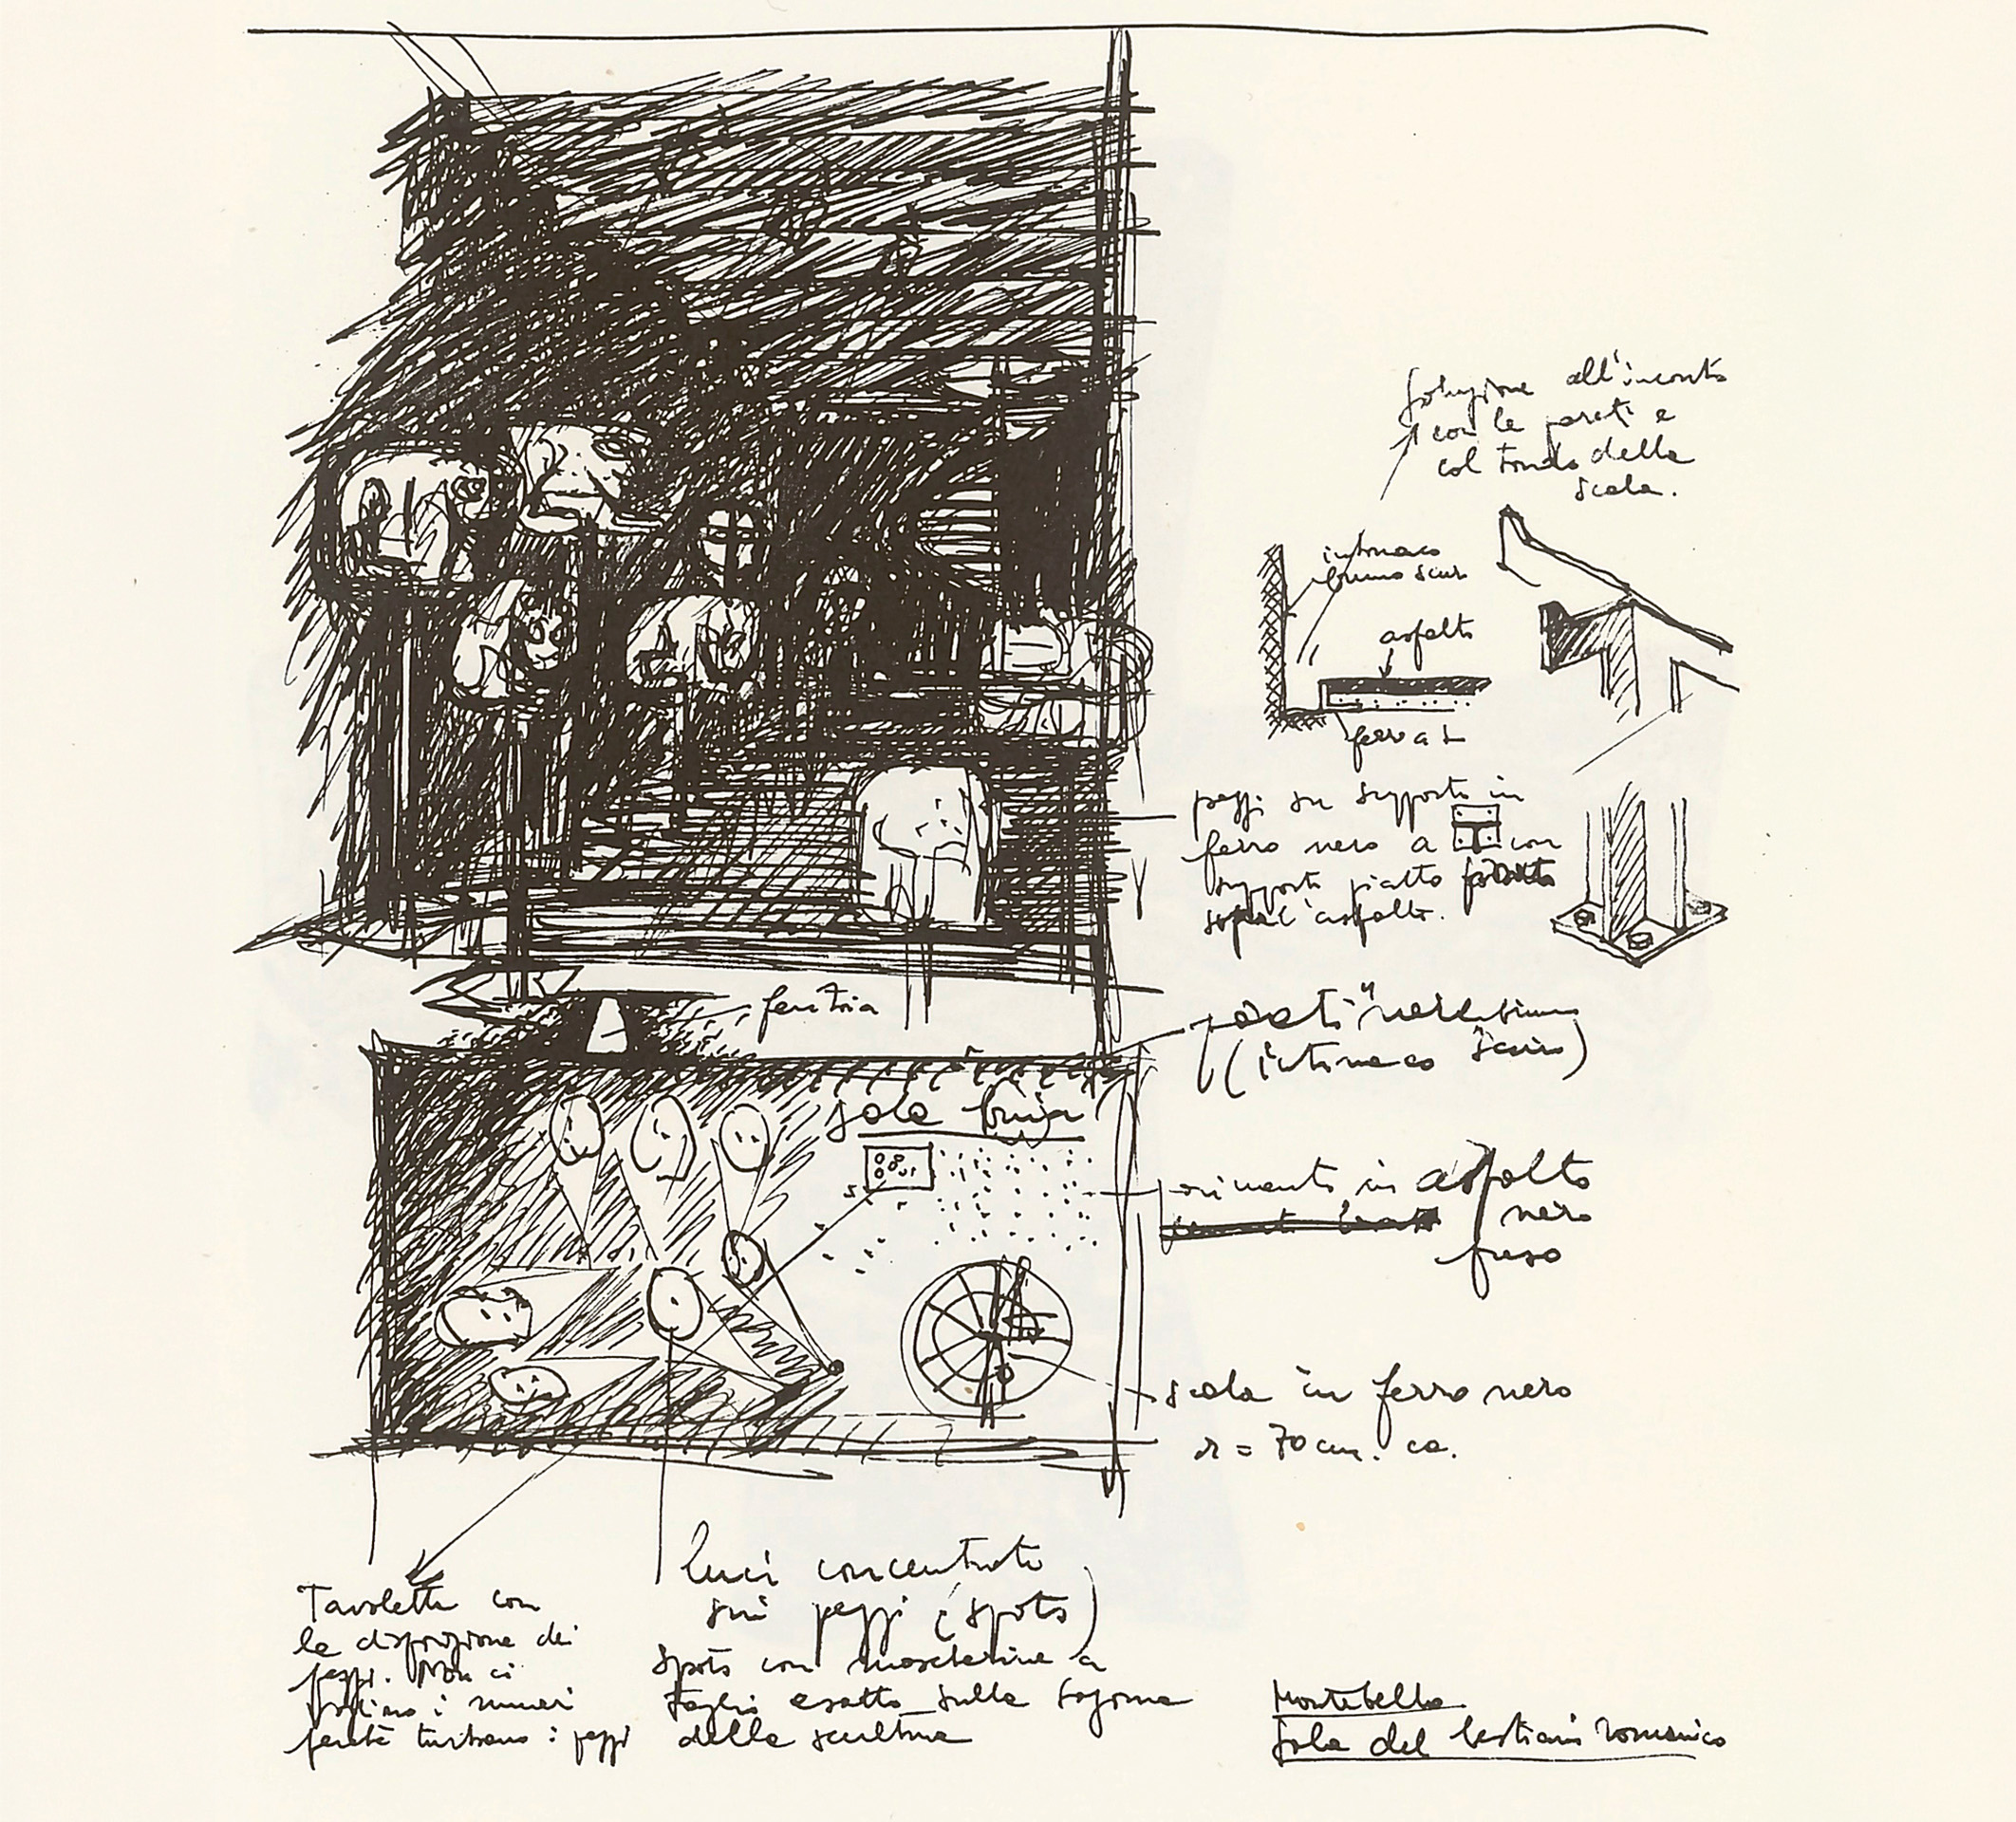 soluzione all'incontro
con le pareti e
col tondo della
scala.
intonaco
bruno scuro
asfalto
ferro a L
pezzi su supporto in
ferro nero a con
supporti piatto
sopra l'asfalto.
fenestra
pareti "nerissime"
(intonaco scuro)
sala buia
pavimento in asfalto
nero
fuso
scala in ferro nero
r = 70 cm. ca.
luci concentrate
sui pezzi (spots)
spots con mascherine a
taglio esatto sulla sagoma
della scultura
Tavolette con
la disposizione dei
pezzi. Non ci
vogliono i numeri
perchè turbano i pezzi
Montebello
Sala del bestiario romanico